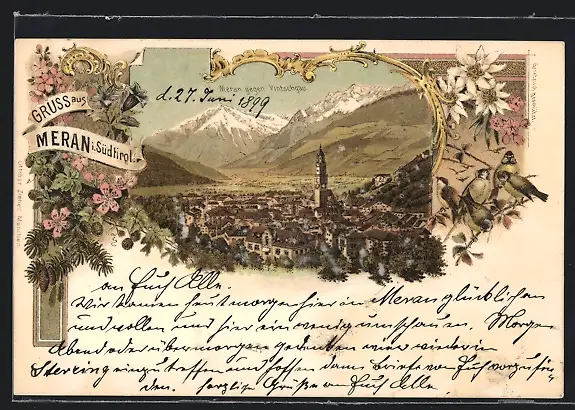 GRUSS aus
MERAN i. Südtirol.
Meran gegen Vintschgau
d. 27. Juni 1899
Ottmar Zieher, München
Gesetzlich geschützt.
an Euch Alle.
Wir kamen heut morgen hier in Meran glücklich an
und wollen uns hier ein wenig umschauen. Morgen
Abend oder übermorgen gedenken wir wieder in
Sterzing einzutreffen und hoffen dann Briefe von Euch vorzufin-
den. herzliche Grüße an Euch Alle.